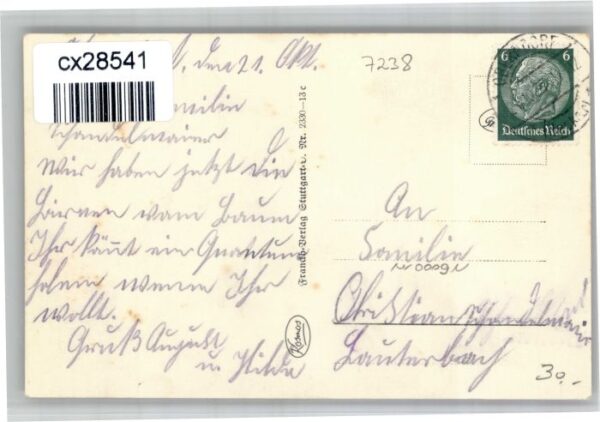 cx28541
den 21. Okt.
7238
Familie
Schondelmaier
Wir haben jetzt die
Birnen vom Baum
Ihr könnt ein Quantum
holen wenn Ihr
wollt.
Gruß August
u Hilda
Franckh-Verlag Stuttgart-O. Nr. 2330-13 c
Kosmos
6 6
Deutsches Reich
An
Familie
Christian Schondelmaier
Lauterbach
30.-